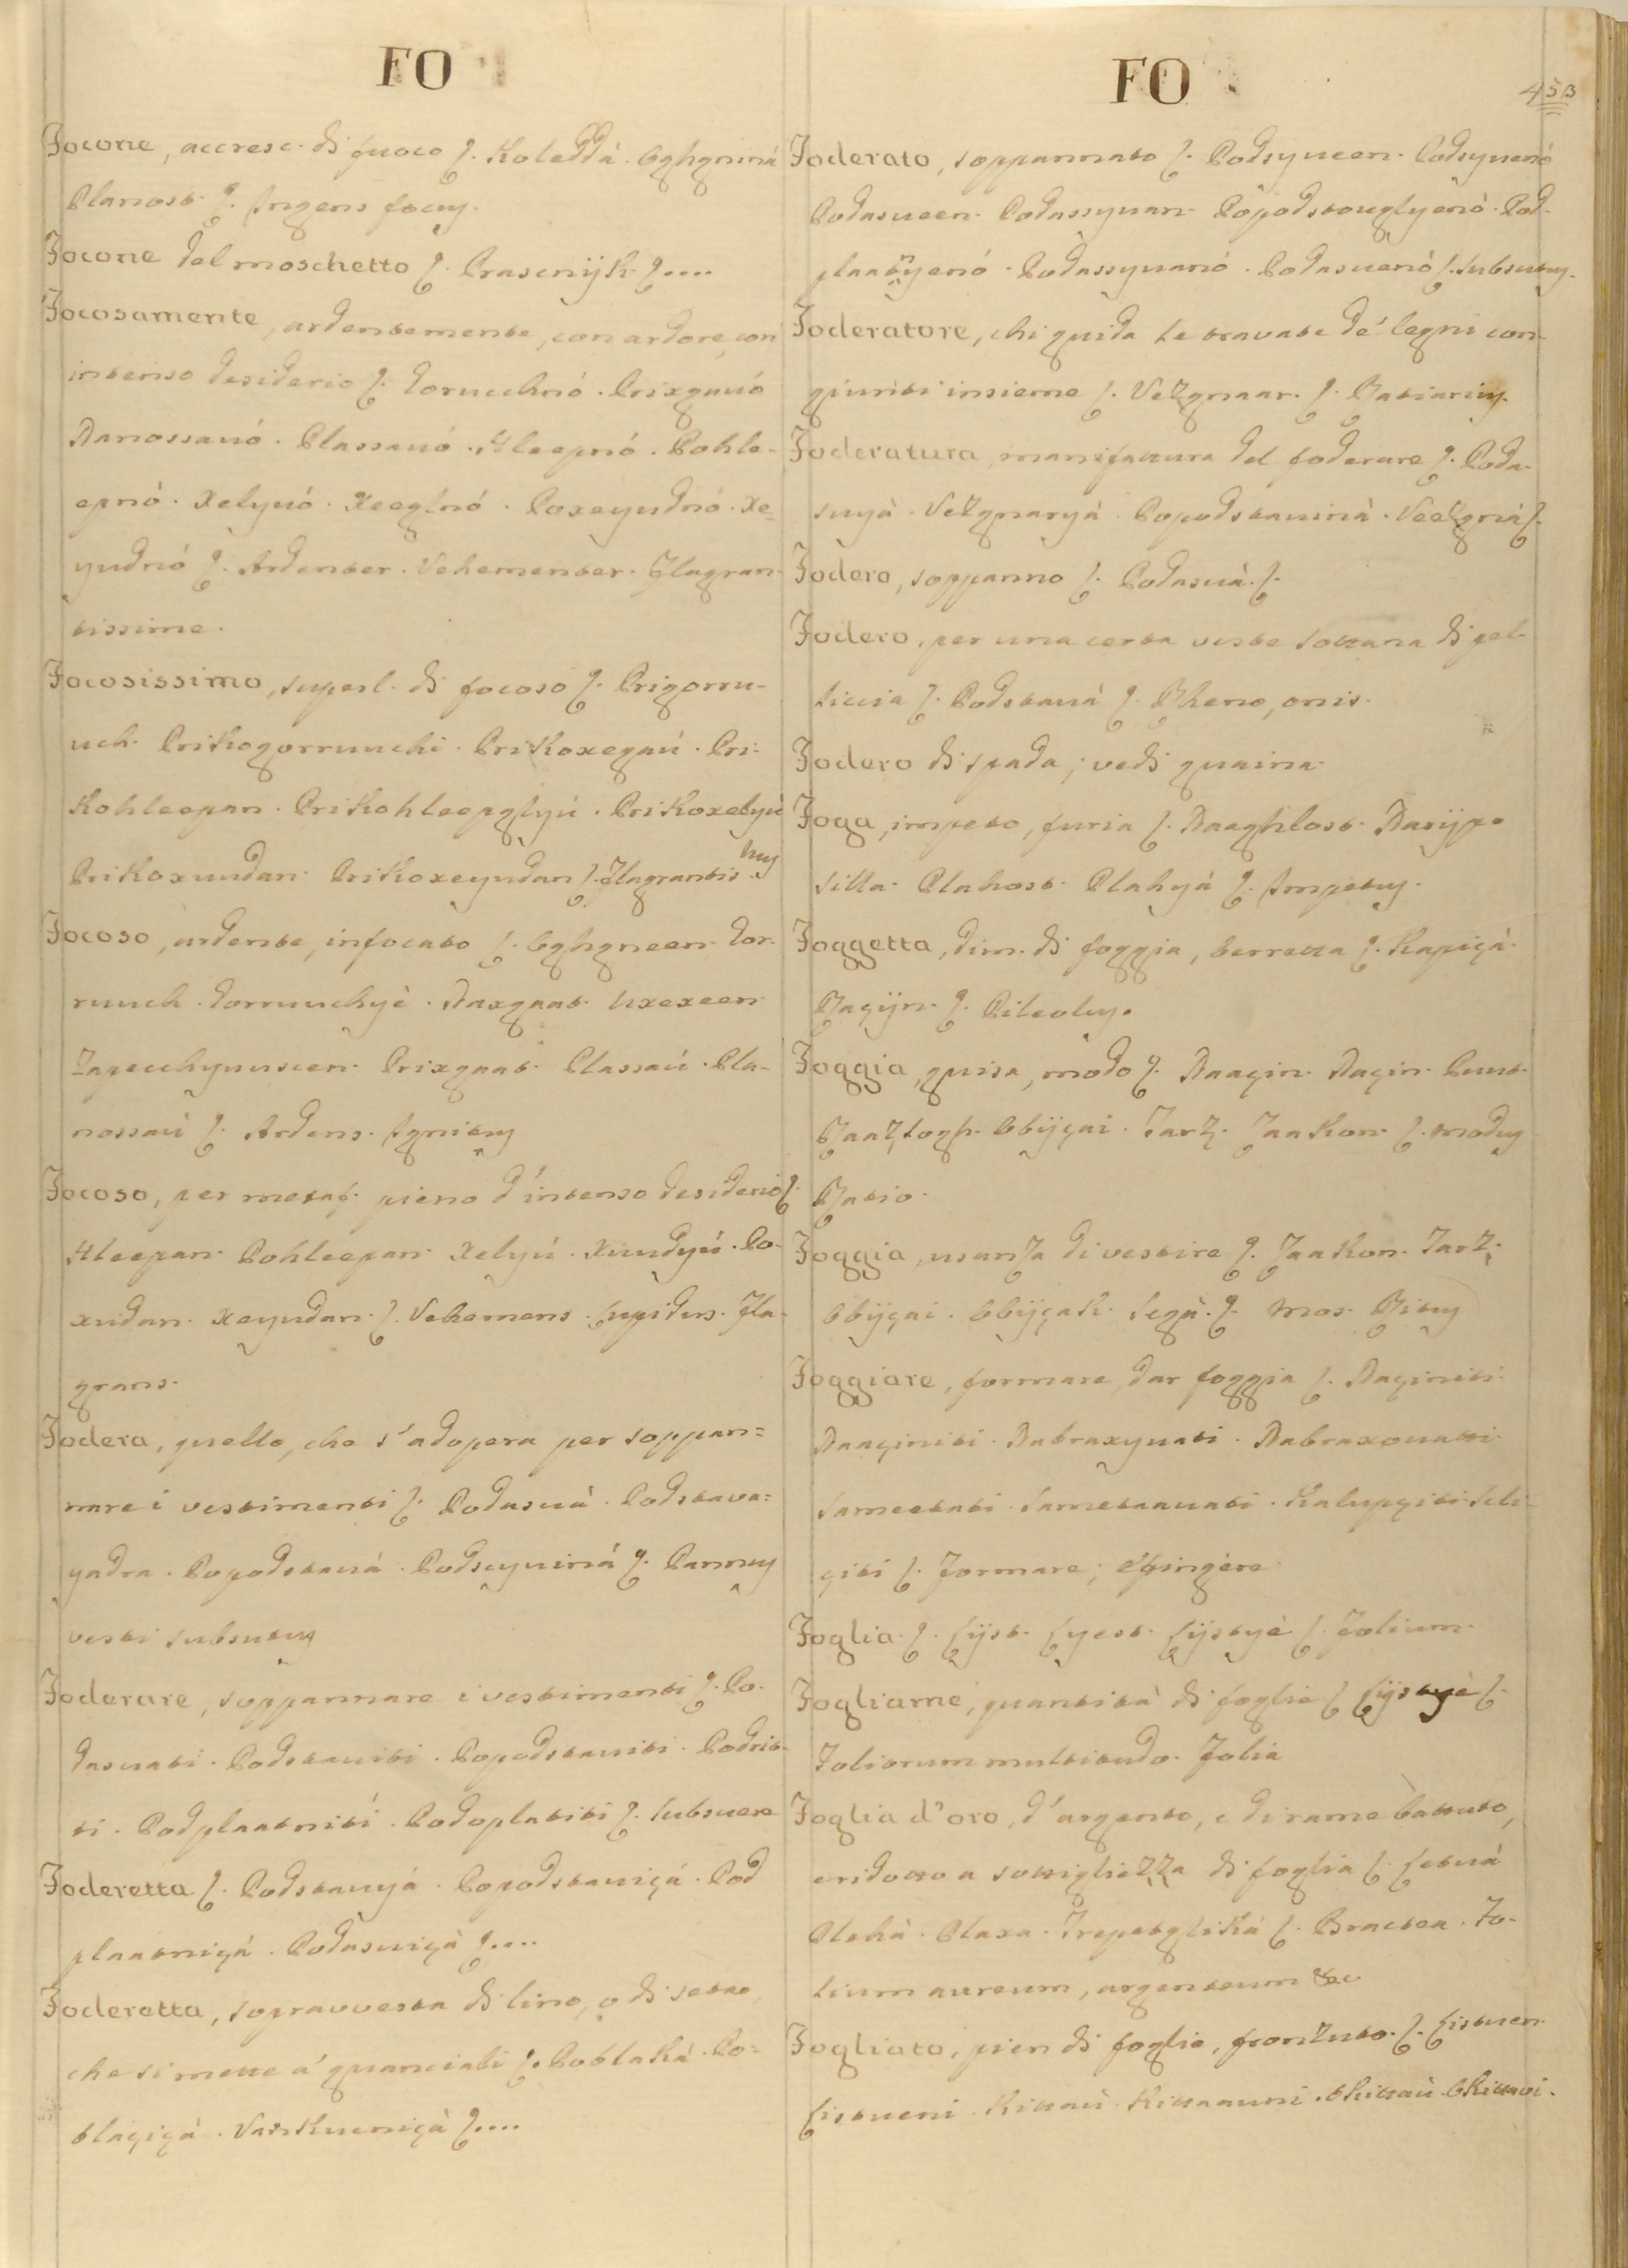 FO
Focone, accresc. di fuoco ſ. Koleddà. Oghgniná
Planost. ſ. Ingens focus.
Focone del moschetto ſ. Prascnijk ſ....
Focosamente, ardentemente, con ardore, con
intenso desiderio ſ. Gorucchnó. Prixgauó
Nanossauó. Plassauó. Hleepnó. Pohle-
epnó. Xelyuó. Xeeglnó. Poxeyudnó. Xe-
yudnó ſ. Ardenter. Vehementer. Flagran-
tissime.
Focosissimo, superl. di focoso ſ. Prigorru-
uch. Prikogorruuchi. Prikoxegaú. Pri-
kohleepan. Prikohleepglyú. Prikoxelyú
Prikoxuudan. Prikoxeyudan ſ. Flagrantis.mus
Focoso, ardente, infocato ſ. Oghgneen. Gor-
ruuch. Gorruuchyè. Naxgaat. Uxexeen
Zapecchyuuscen. Prixgaat. Plassaú. Pla-
nossaú ſ. Ardens. Ignitus
Focoso, per metaf. pieno d'intenso desiderio ſ.
Hleepan. Pohleepan. Xelyú. Xuudyú. Po-
xudan. Xeyudan. ſ. Vehemens. Cupidus. Fla-
grans.
Fodera, quello, che s'adopera per soppan=
nare i vestimenti ſ. Podasuà. Podstava=
yadra. Popodstauá. Podscyuiná ſ. Pannus
vesti subsutus
Foderare, soppannare i vestimenti ſ. Po-
dasuati. Podstauiti. Popodstauiti. Podrit-
ti. Podplaatniti. Podoplatiti ſ. Subsuere
Foderetta ſ. Podstauyá. Popodstauiçá. Pod
plaatniçá. Podasuiçà ſ....
Foderetta, sopravvesta di lino, o di seta
che si mette a' guanciali ſ. Poblaká. Po=
blaçiçà. Vankueniçà ſ....
FO
453
Foderato, soppannato ſ. Podsyueen. Podsyuenó
Podasueen. Podassyuan. Popodstouglyenò. Pod-
plaatnyenó. Podassyuanó. Podasuenò ſ. Subsutus.
Foderatore, chi guida le travate de' legni con-
giunti insieme ſ. Vezgnaar. ſ. Ratiarius.
Foderatura, manifattura del foderare ſ. Poda-
suyà. Vezgnaryá. Popodstauinà. Veezgnà ſ.
Fodero, soppanno ſ. Podasuà. ſ.
Fodero, per una certa veste sottana di pel-
liccia ſ. Podstauà ſ. Rheno, onis.
Fodero di spada; vedi guaina.
Foga, impeto, furia ſ. Naaghlost. Nasijp.
Silla. Plahost. Plahyá ſ. Impetus.
Foggetta, dim. di foggia, berretta ſ. Kapiçà.
Raçijn. ſ. Pileolus.
Foggia, guisa, modo ſ. Naaçin. Naçin. Puut.
Raazlogh. Obijçai. Tarz. Zaakon. ſ. Modus
Ratio.
Foggia, usanza di vestire ſ. Zaakon. Tarz.
Obijçai. Obijçak. Segà. ſ. Mos. Ritus
Foggiare, formare, dar foggia ſ. Naçiniti.
Naaçiniti. Nabraxyuati. Nabraxouatti.
Sameetati. Sametaauati. Kalupçiti. Sli-
çiti ſ. Formare; Effingere
Foglia. ſ. Lijst. Lyest. Lijstyè ſ. Folium.
Fogliame, quantità di foglie ſ. Lijstyè ſ.
Foliorum multitudo. Folia
Foglia d'oro, d'argento, e di rame battuto,
e ridotto a sottigliezza di foglia ſ. Letuá
Plekà. Plaxa. Trepetgliká ſ. Bractea. Fo-
lium aureum, argenteum &c.
Fogliato, pien di foglie, fronzuto. ſ. Listuen.
Listueni. Kittaù. Kittaauni. Okittaù. Okittavi.